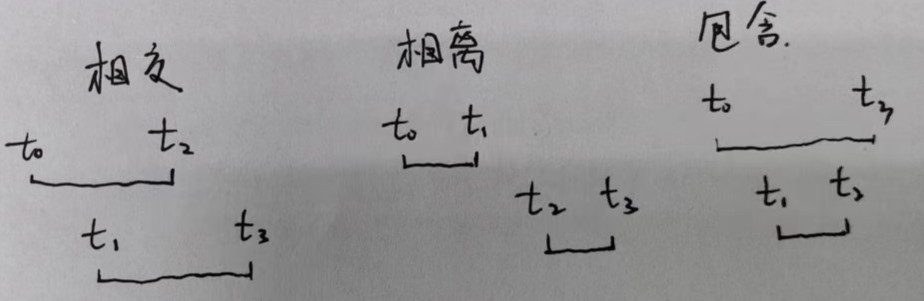 相交
t₀ t₂
t₁ t₃
相离
t₀ t₁
t₂ t₃
包含.
t₀ t₃
t₁ t₂